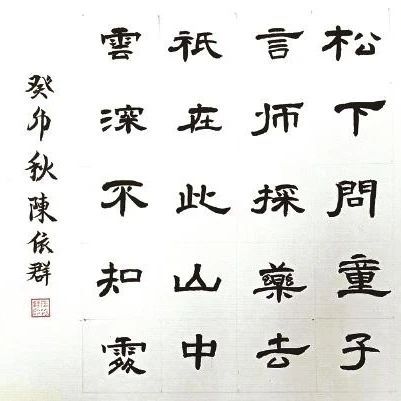 松下問童子
言师採藥去
祇在此山中
雲深不知處
癸卯秋陳依群